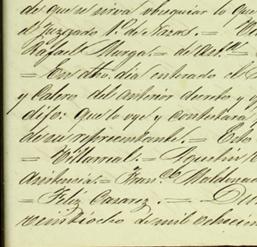 do que se sirva obsequiar lo que
el Juzgado 1º de Nasas. =
Rafael Murga. = de Asª. =
= En otro dia enterado el C.
y Calero del anterior decreto y q
dijo: que lo oye y contestara p
de su representante. = Esto
= Villarreal. = Agustin
Asistencia. = Francº Maldonado
= Feliz Cazarez. = Du
veintiocho de mil ochocien